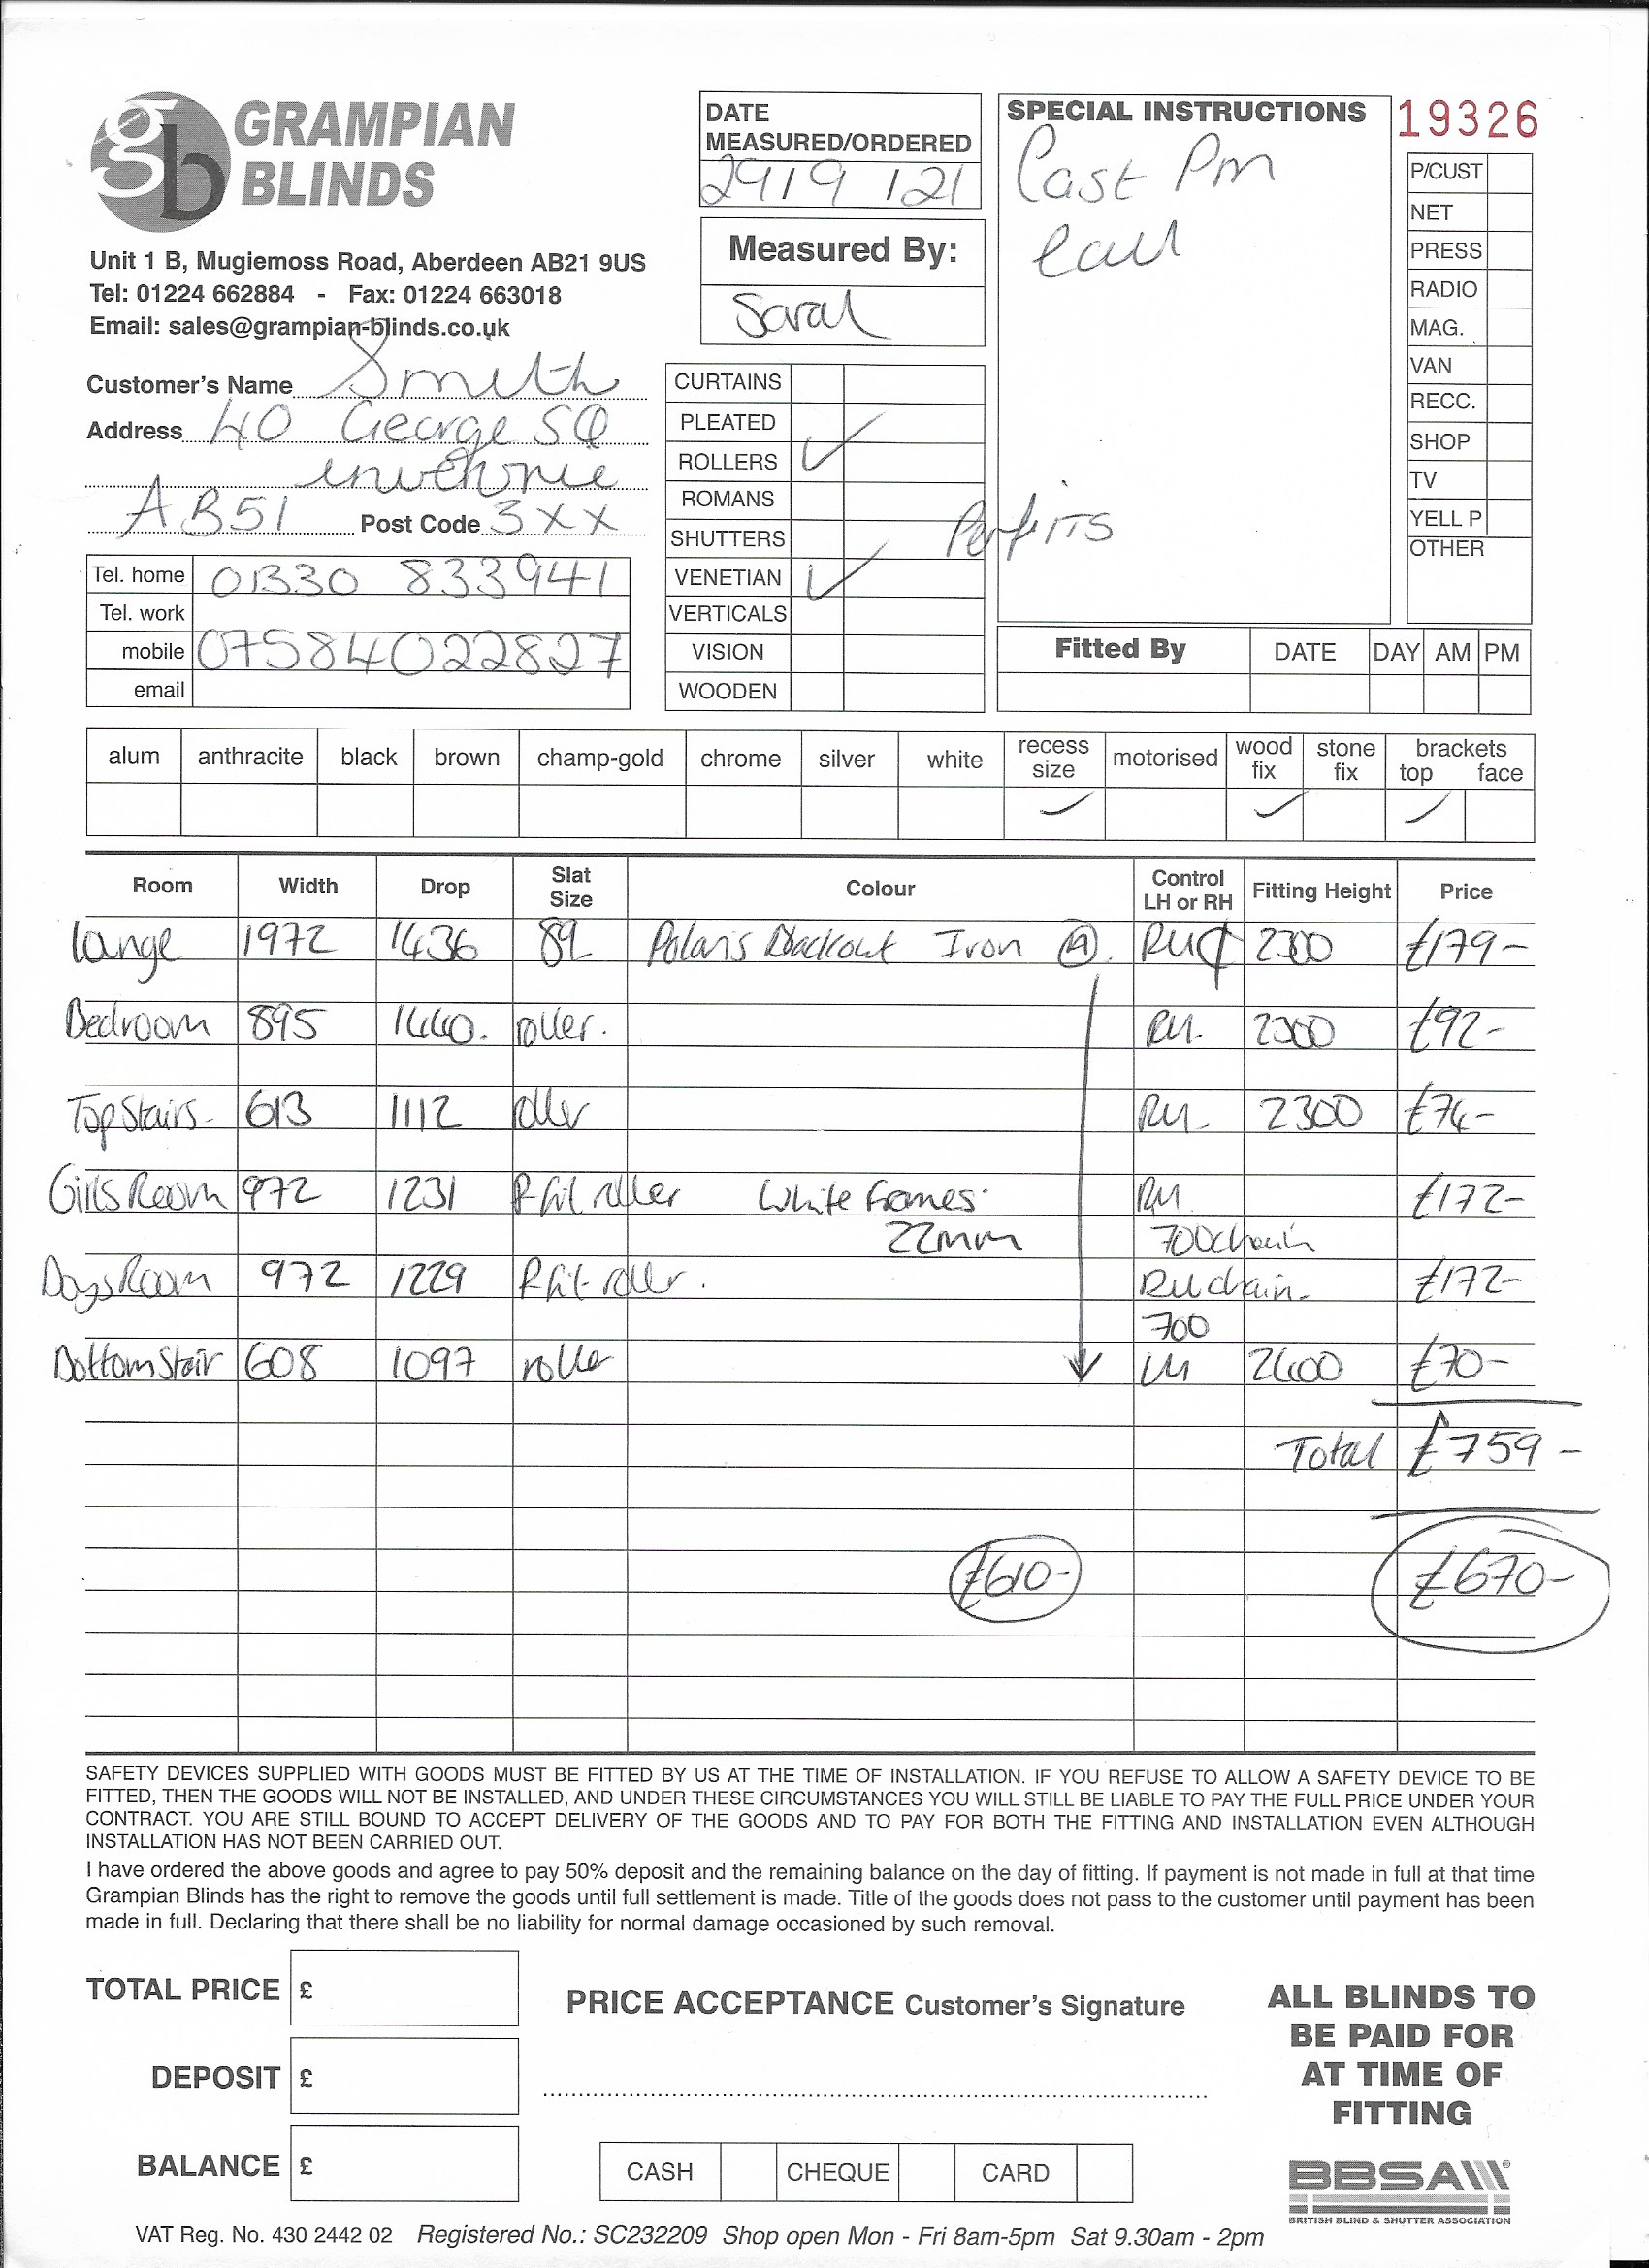 GRAMPIAN
BLINDS
Unit 1 B, Mugiemoss Road, Aberdeen AB21 9US
Tel: 01224 662884 - Fax: 01224 663018
Email: sales@grampian-blinds.co.uk
Customer's Name Smith
Address 40 George SQ
AB51 Post Code 3XX
Tel. home 01330 833941
Tel. work
mobile 07584022827
email
DATE
MEASURED/ORDERED
29/9/21
Measured By:
Sarah
CURTAINS
PLEATED
ROLLERS ✓
ROMANS
SHUTTERS
VENETIAN ✓
VERTICALS
VISION
WOODEN
SPECIAL INSTRUCTIONS
Last Pm
call
Perfits
19326
P/CUST
NET
PRESS
RADIO
MAG.
VAN
RECC.
SHOP
TV
YELL P
OTHER
Fitted By DATE DAY AM PM
alum anthracite black brown champ-gold chrome silver white recess size motorised wood fix stone fix brackets top face
✓ ✓ ✓
Room Width Drop Slat Size Colour Control LH or RH Fitting Height Price
Lounge 1972 1436 89 Polaris Blackout Iron A RH 2300 £179-
Bedroom 895 1440. roller. RH. 2300 £92-
Top Stairs- 613 1112 roller RH- 2300 £74-
Girls Room 972 1231 P fit roller White frames RH £172-
22mm 700chain
Boys Room 972 1229 P fit roller. RH chain- £172-
700
Bottom Stair 608 1097 roller LH 2400 £70-
Total £759-
£610- £670-
SAFETY DEVICES SUPPLIED WITH GOODS MUST BE FITTED BY US AT THE TIME OF INSTALLATION. IF YOU REFUSE TO ALLOW A SAFETY DEVICE TO BE
FITTED, THEN THE GOODS WILL NOT BE INSTALLED, AND UNDER THESE CIRCUMSTANCES YOU WILL STILL BE LIABLE TO PAY THE FULL PRICE UNDER YOUR
CONTRACT. YOU ARE STILL BOUND TO ACCEPT DELIVERY OF THE GOODS AND TO PAY FOR BOTH THE FITTING AND INSTALLATION EVEN ALTHOUGH
INSTALLATION HAS NOT BEEN CARRIED OUT.
I have ordered the above goods and agree to pay 50% deposit and the remaining balance on the day of fitting. If payment is not made in full at that time
Grampian Blinds has the right to remove the goods until full settlement is made. Title of the goods does not pass to the customer until payment has been
made in full. Declaring that there shall be no liability for normal damage occasioned by such removal.
TOTAL PRICE £
DEPOSIT £
BALANCE £
PRICE ACCEPTANCE Customer's Signature
CASH CHEQUE CARD
ALL BLINDS TO
BE PAID FOR
AT TIME OF
FITTING
BBSA
BRITISH BLIND & SHUTTER ASSOCIATION
VAT Reg. No. 430 2442 02 Registered No.: SC232209 Shop open Mon - Fri 8am-5pm Sat 9.30am - 2pm